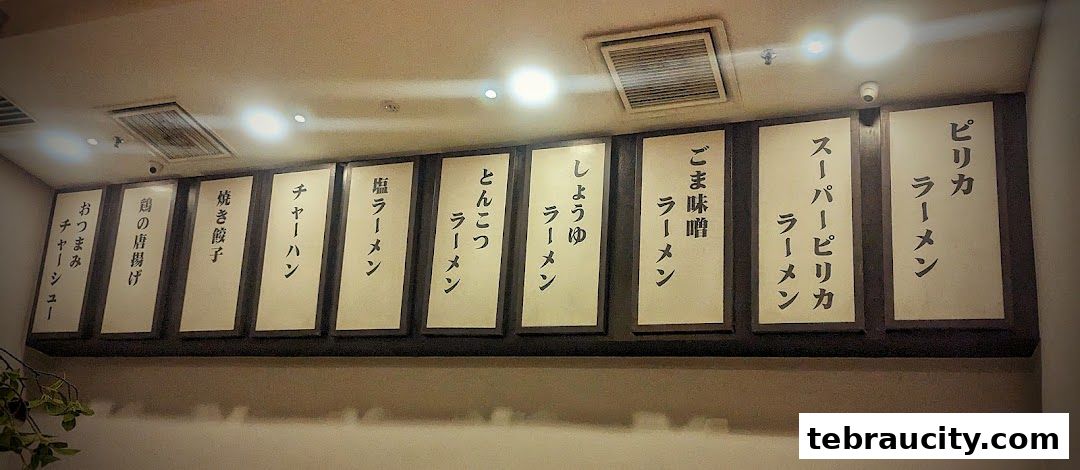 ピリカ
ラーメン
スーパーピリカ
ラーメン
ごま味噌
ラーメン
しょうゆ
ラーメン
とんこつ
ラーメン
塩ラーメン
チャーハン
焼き餃子
鶏の唐揚げ
おつまみ
チャーシュー
tebraucity.com